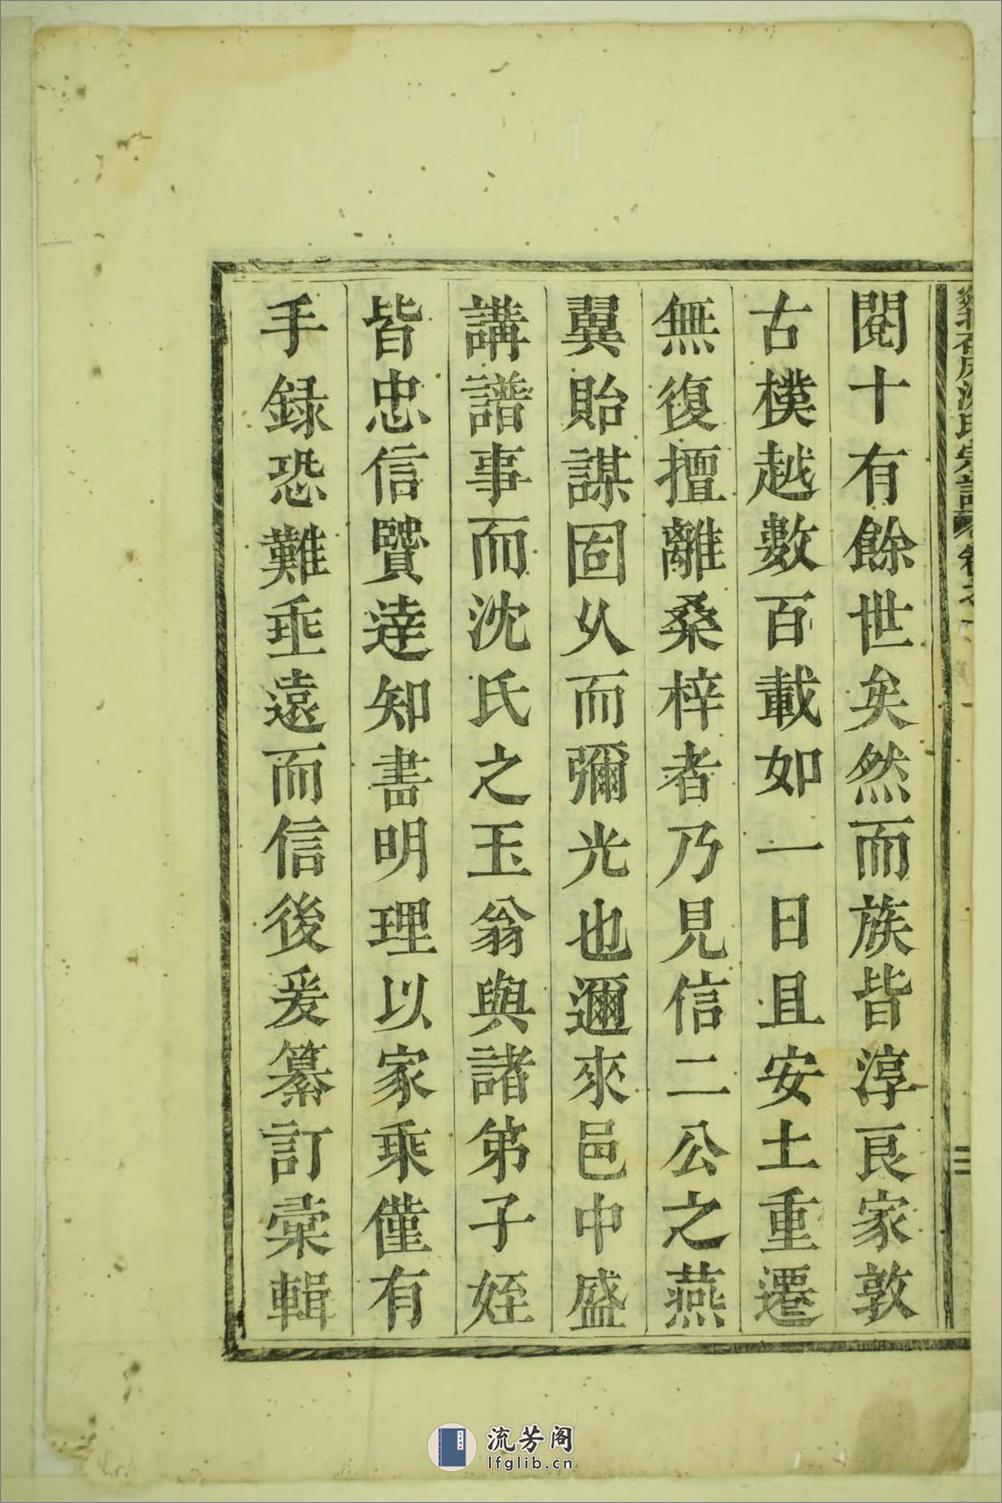 閱十有餘世矣然而族皆淳良家敦
古樸越數百載如一日且安土重遷
無復擅離桑梓者乃見信二公之燕
翼貽謀固乆而彌光也邇來邑中盛
講譜事而沈氏之玉翁與諸弟子姪
皆忠信賢達知書明理以家乘僅有
手録恐難垂遠而信後爰纂訂彙輯
流芳阁
lfglib.cn